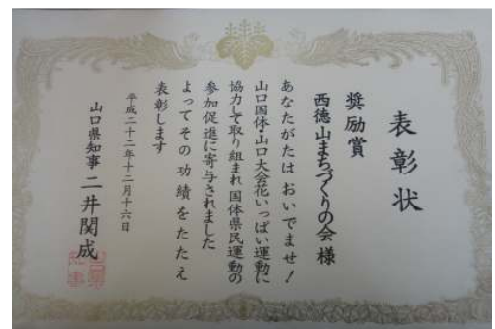 表彰状
奨励賞
西徳山まちづくりの会様
あなたがたはおいでませ!
山口国体・山口大会花いっぱい運動に
協力して取り組まれ国体県民運動の
参加促進に寄与されました
よってその功績をたたえ
表彰します
平成二十二年十二月十六日
山口県知事 二井関成